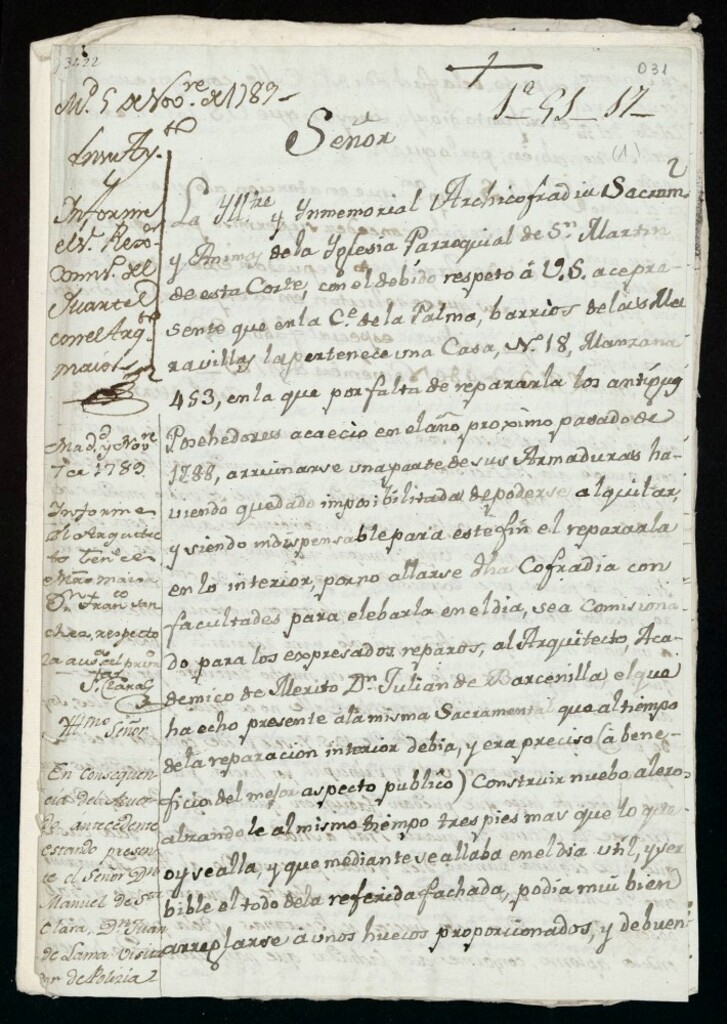 3422
031
Md. 5 de Novre. de 1789
1a 51 17
(1)
Señor
2
En su Ayto.
Informe
el Sr.
del
Quartel
con el Arqto.
maior
Madd. y Novre
7 de 1789
Informe
el Arquitec
to Tente de
Mro maior
Dn. Franco San
chez, respecto
la ausa. del prin
Sta Clara
Yllmo. Señor
En consequen
cia del Acuer
do antecedente
estando presen
te el Señor Dn
Manuel de Sta
Clara, Dn Juan
de Lama Visita
dor de Polizia
La Yllre y Ynmemorial Archicofradia Sacram
y Animas de la Yglesia Parroquial de Sn. Martin
de esta Corte, con el debido respeto á V.S. ace pre-
sente que en la Ce. de la Palma, barrios de las Ma
ravillas la pertenece una Casa, No. 18, Manzana
453, en la que por falta de repararla los antiguos
Posehedores acaecio en el año proximo pasado de
1788, arruinarse una parte de sus Armaduras ha-
viendo quedado imposibilitada de poderse alquilar,
y siendo indispensable para este fin el repararla
en lo interior, por no allarse dha Cofradia con
facultades para elebarla en el dia, se a Comisiona-
do para los expresados reparos, al Arquitecto, Aca-
demico de Merito Dn. Julian de Barcenilla el que
ha echo presente á la misma Sacramental que al tiempo
de la reparacion interior debia, y era preciso (à bene-
ficio del mejor aspecto publico) Construir nuebo alero
alzandole al mismo tiempo tres pies mas que lo que
oy se alla, y que mediante se allaba en el dia util, y ser
bible el todo de la referida fachada, podia mui bien
arreglarse á unos huecos proporcionados, y de buen